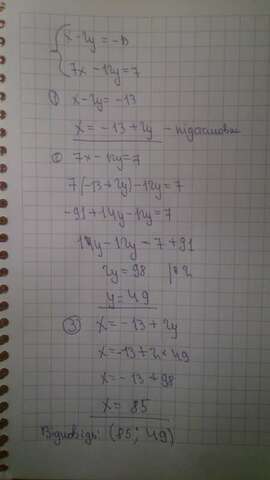 x - 2y = -13
7x - 12y = 7
① x - 2y = -13
x = -13 + 2y - підстановка
② 7x - 12y = 7
7(-13 + 2y) - 12y = 7
-91 + 14y - 12y = 7
14y - 12y - 7 + 91
2y = 98 | : 2
y = 49
③ x = -13 + 2y
x = -13 + 2 · 49
x = -13 + 98
x = 85
Відповідь: (85; 49)